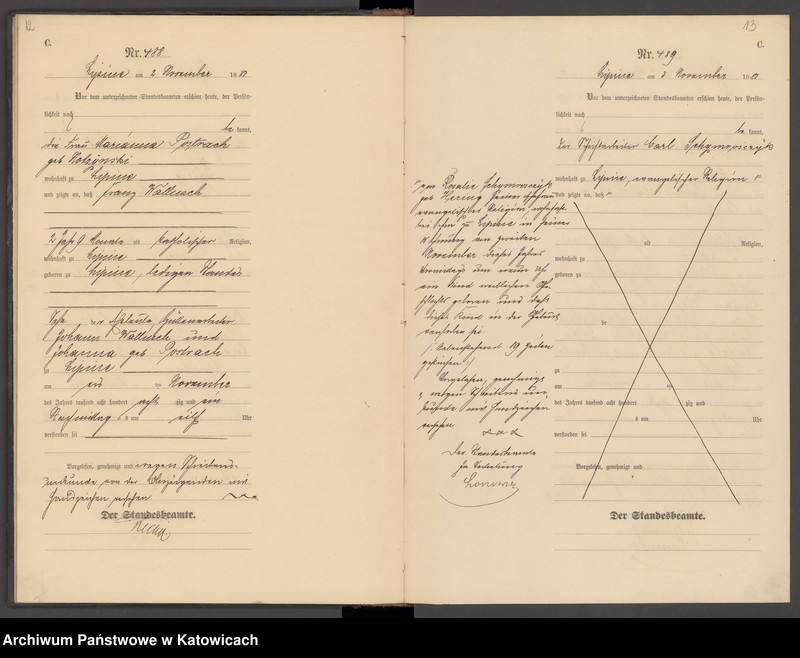 12
C.
Nr. 488
Lipine am 2 November 18
Vor dem unterzeichneten Standesbeamten erschien heute, der Persön-
lichkeit nach
be kannt,
die Frau Marianna Postrach
geb
wohnhaft zu Lipine
und zeigte an, daß Franz Wallusch
2 Jahr 9 Monate alt katholischer Religion,
wohnhaft zu Lipine
geboren zu Lipine, ledigen Standes
Sohn der Eheleute Hüttenarbeiter
Johann Wallusch und
Johanna geb Postrach
zu Lipine
am November
des Jahres tausend acht hundert acht zig und ein
Nachmittag s um Uhr
verstorben sei
Vorgelesen, genehmigt und wegen Schreibens-
unkunde von der Anzeigenden mit
Handzeichen versehen
Der Standesbeamte.
13
C.
Nr. 489
Lipine am 3 November 18
Vor dem unterzeichneten Standesbeamten erschien heute, der Persön-
lichkeit nach
be kannt,
der Carl Schymosczyk
wohnhaft zu Lipine, evangelischer Religion
und zeigte an, daß
alt Religion,
wohnhaft zu
geboren zu
de
zu
am
des Jahres tausend acht hundert zig und
s um Uhr
verstorben sei
Vorgelesen, genehmigt und
Der Standesbeamte.
Rosalie Schymosczyk
geb Hering seiner Ehefrau
evangelischer Religion, wohnhaft
bei ihm zu Lipine in seiner
Wohnung am zweiten
November dieses Jahres
Vormittags um neun Uhr
ein Kind weiblichen Ge-
schlechts geboren und daß
dieses Kind in der Geburt
verstorben sei
19 Zeilen
gestrichen
Vorgelesen, genehmigt
wegen Schreibens un-
kunde mit Handzeichen
versehen
xxx
Der Standesbeamte
Archiwum Państwowe w Katowicach